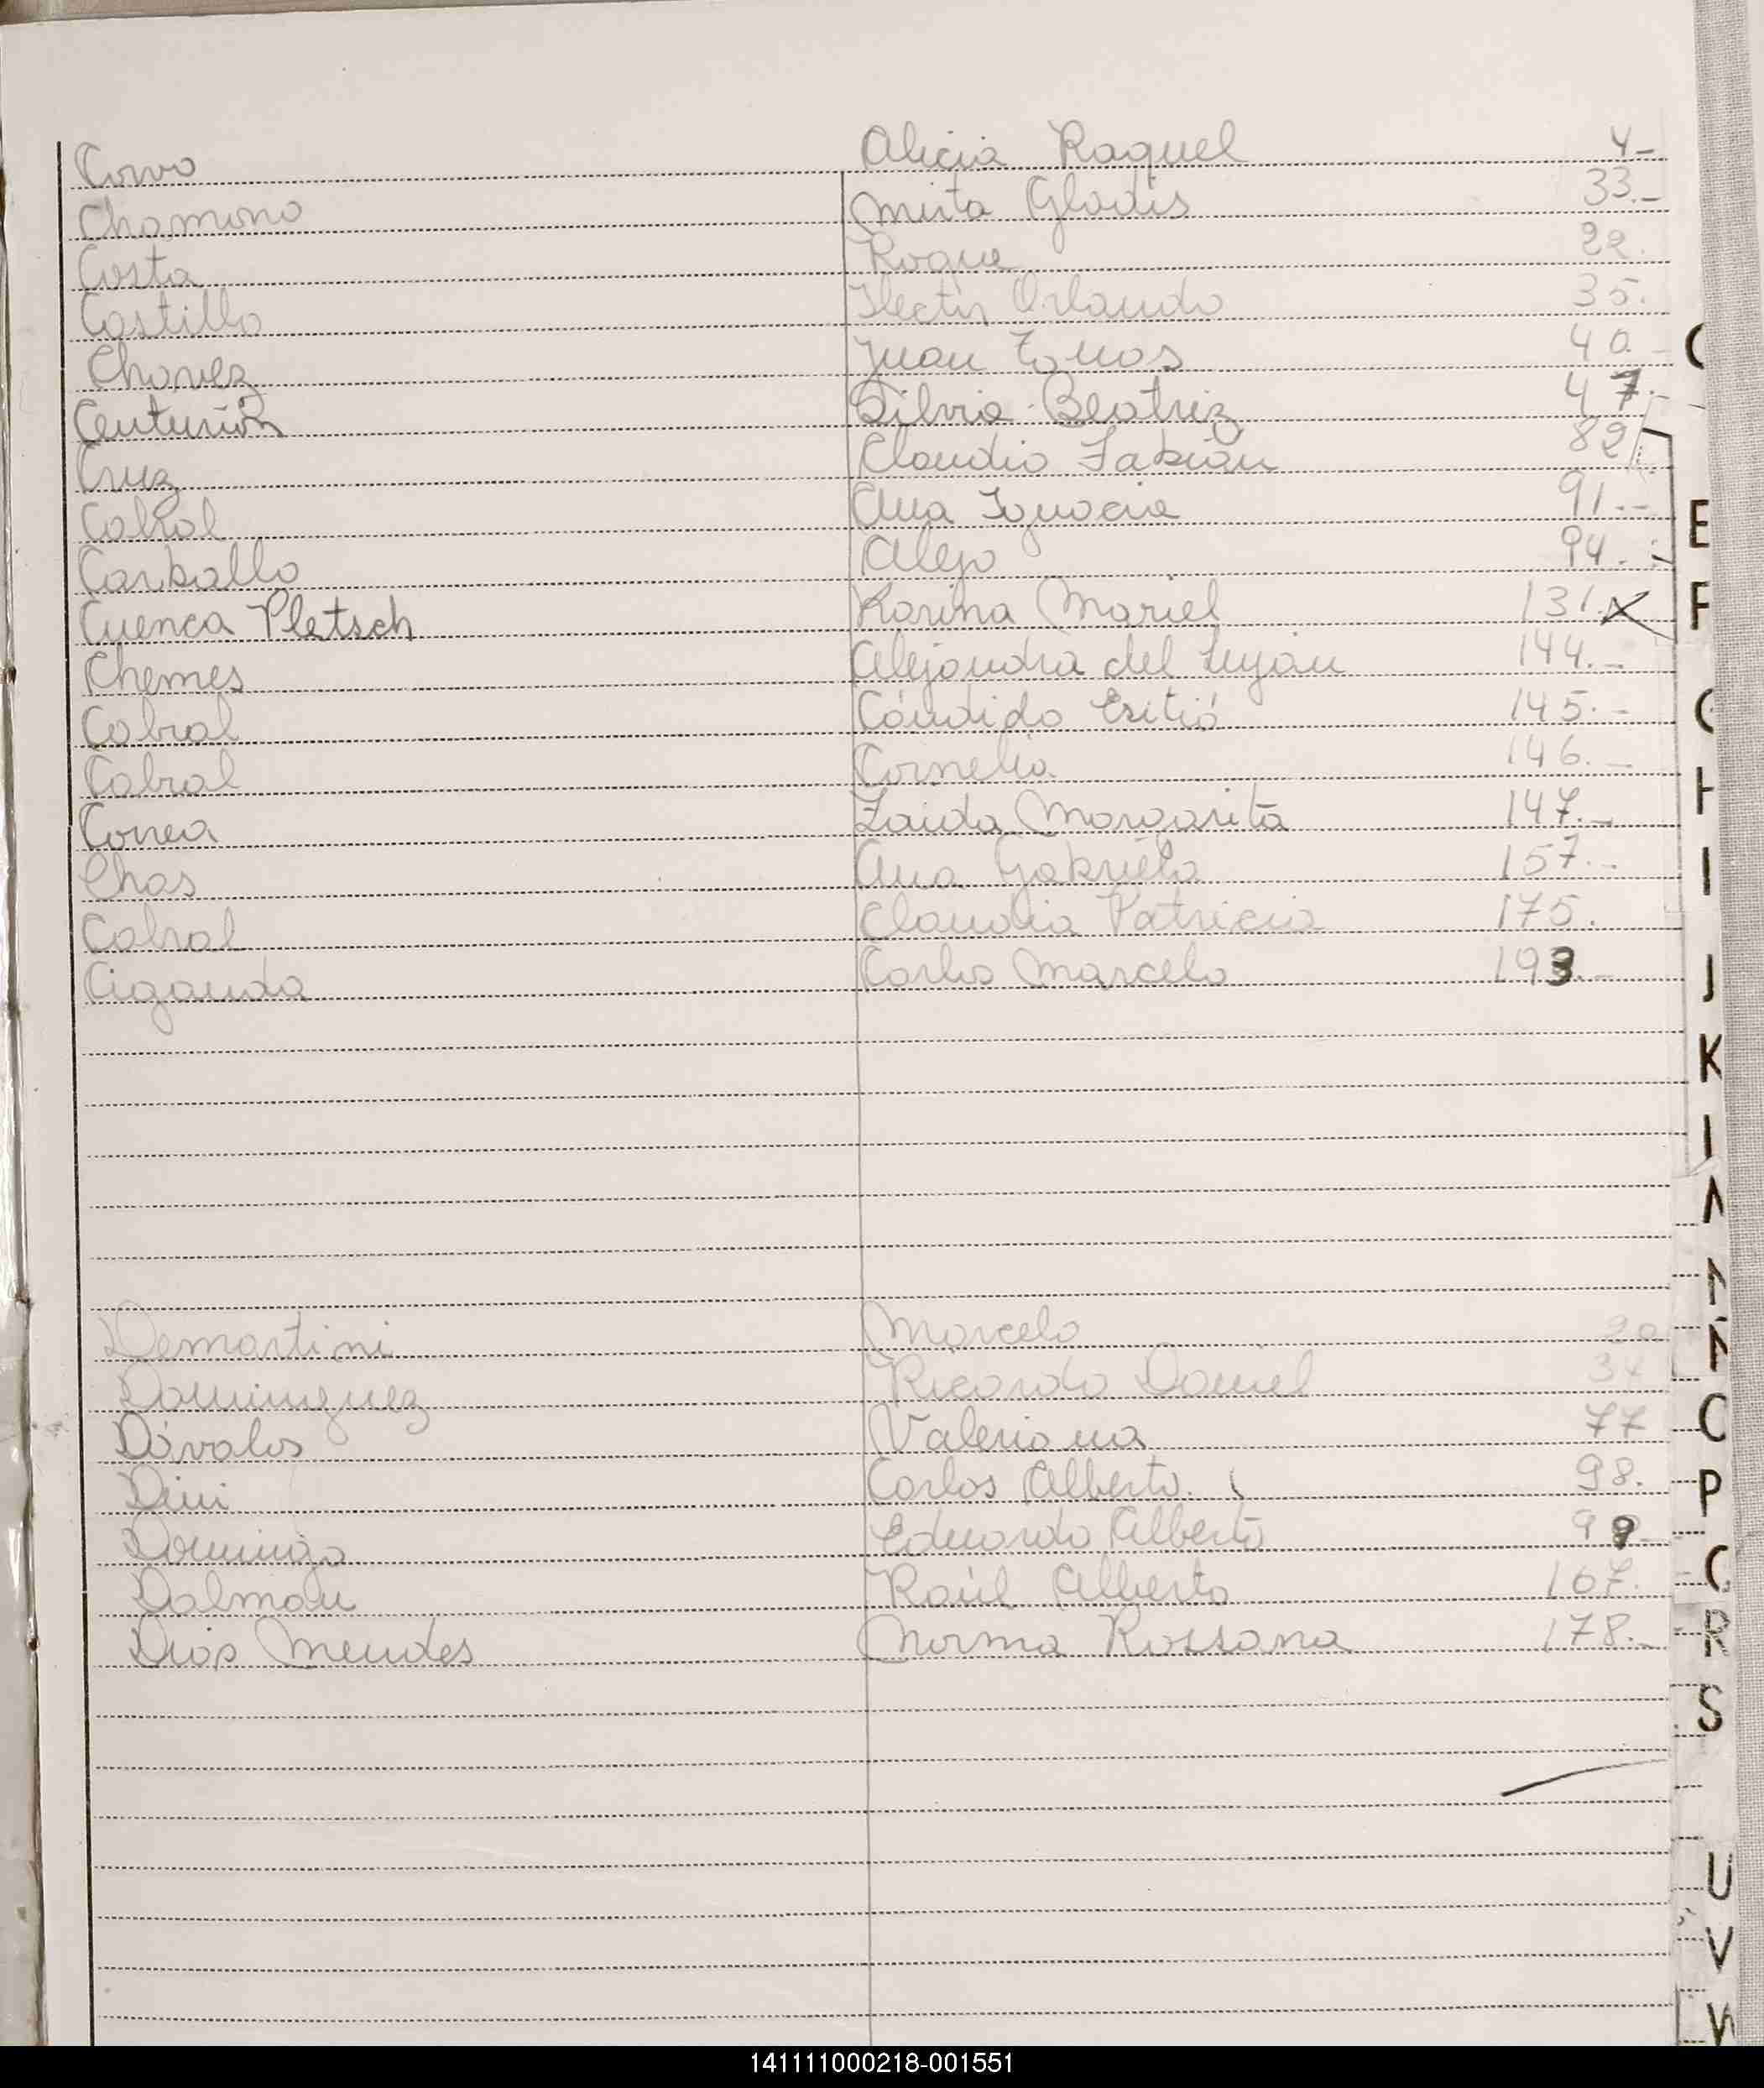 Corvo Alicia Raquel 4-
Chamorro Mirta Gladis 33.-
Costa Roque 22.
Castillo Hector Orlando 35.
Chavez Juan Tomas 40.-
Centurión Silvia Beatriz 47.-
Cruz Claudio Fabián 82
Cabral Ana Ignacia 91.--
Carballo Alejo 94.-
Cuenca Pletsch Karina Mariel 131.X
Chemes Alejandra del Luján 144.-
Cabral Cándido 145.-
Cabral Cornelia 146.-
Correa Zaida Margarita 147.-
Chas Ana Gabriela 157.-
Cabral Claudia Patricia 175.
Ciganda Carlos Marcelo 193.-
Demartini Marcelo 20
Dominguez Ricardo Daniel
Dávalos Valeriana 77
Dini Carlos Alberto. 98.
Domingo Eduardo Alberto 99-
Dalmau Raúl Alberto 167.
Dias Mendes Norma Rossana 178.-
E
F
I
J
K
P
R
S
U
V
141111000218-001551